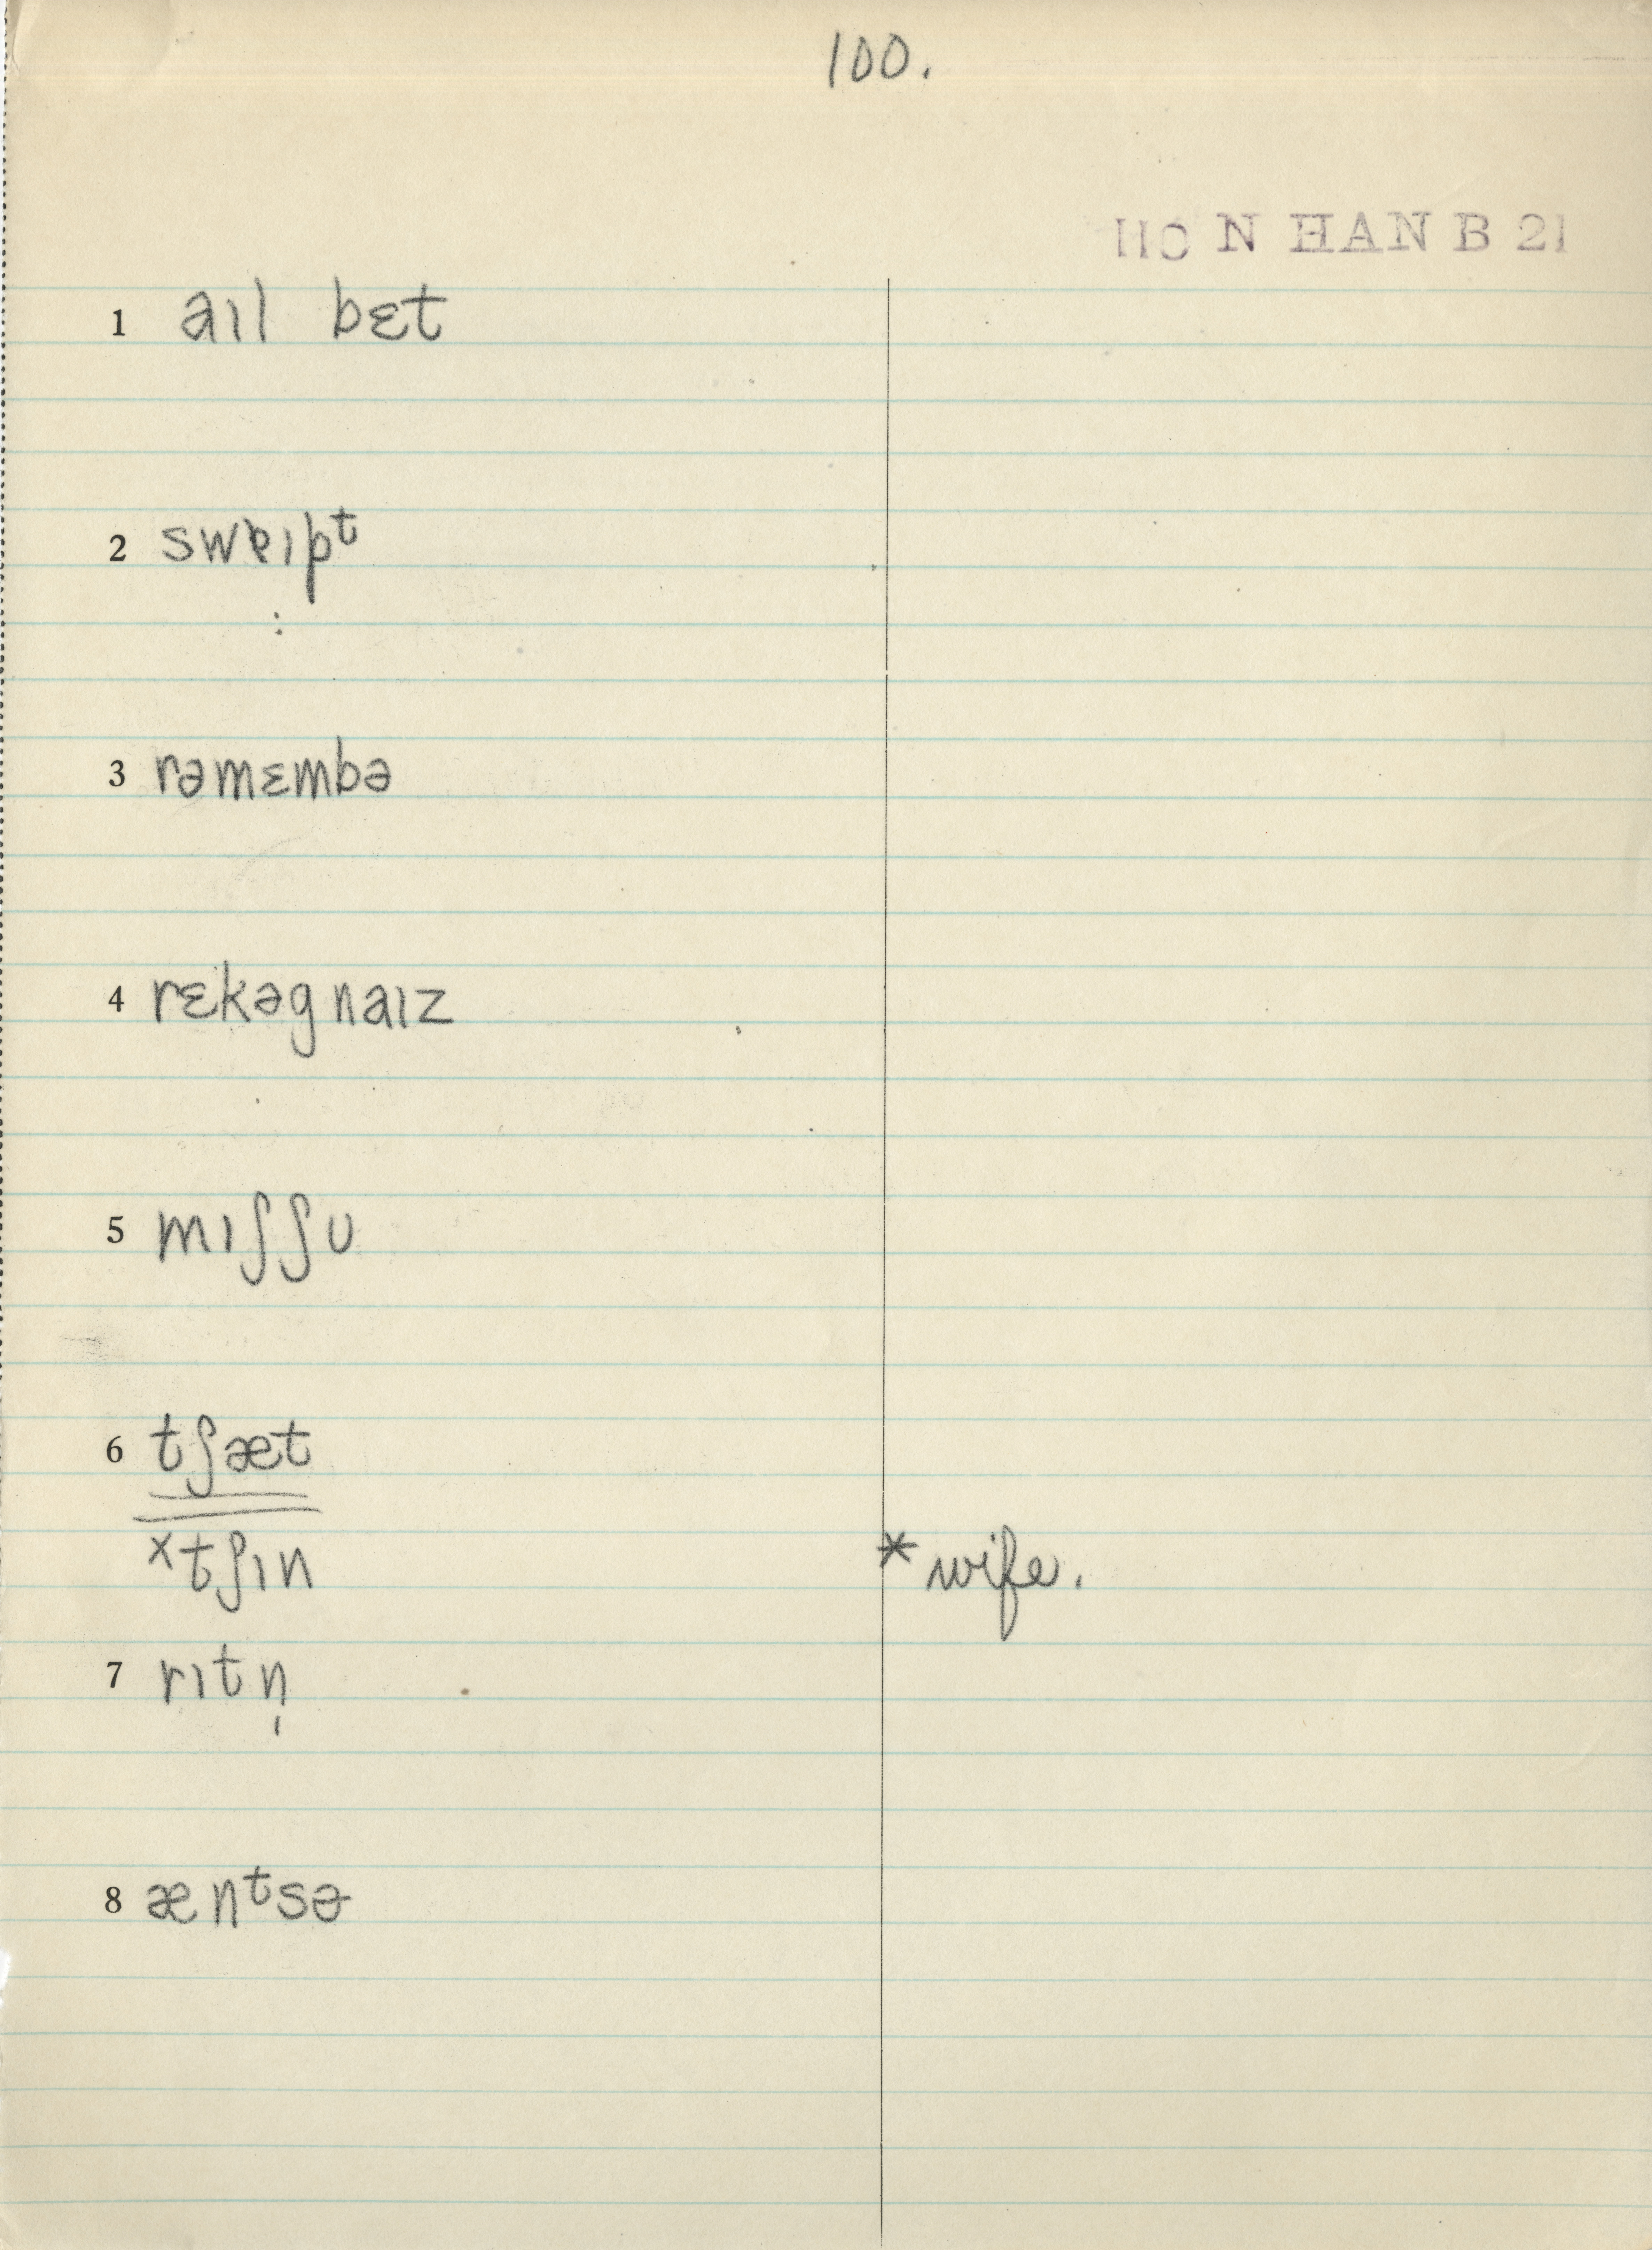 100.
110 N HAN B 21
1 aɪl bɛt
2 swɐɪpᵗ
3 rəmɛmbə
4 rɛkəgnaɪz
5 mɪʃʃʊ
6 tʃæt
ˣtʃɪn * wife.
7 rɪtn̩
8 ænᵗsɚ